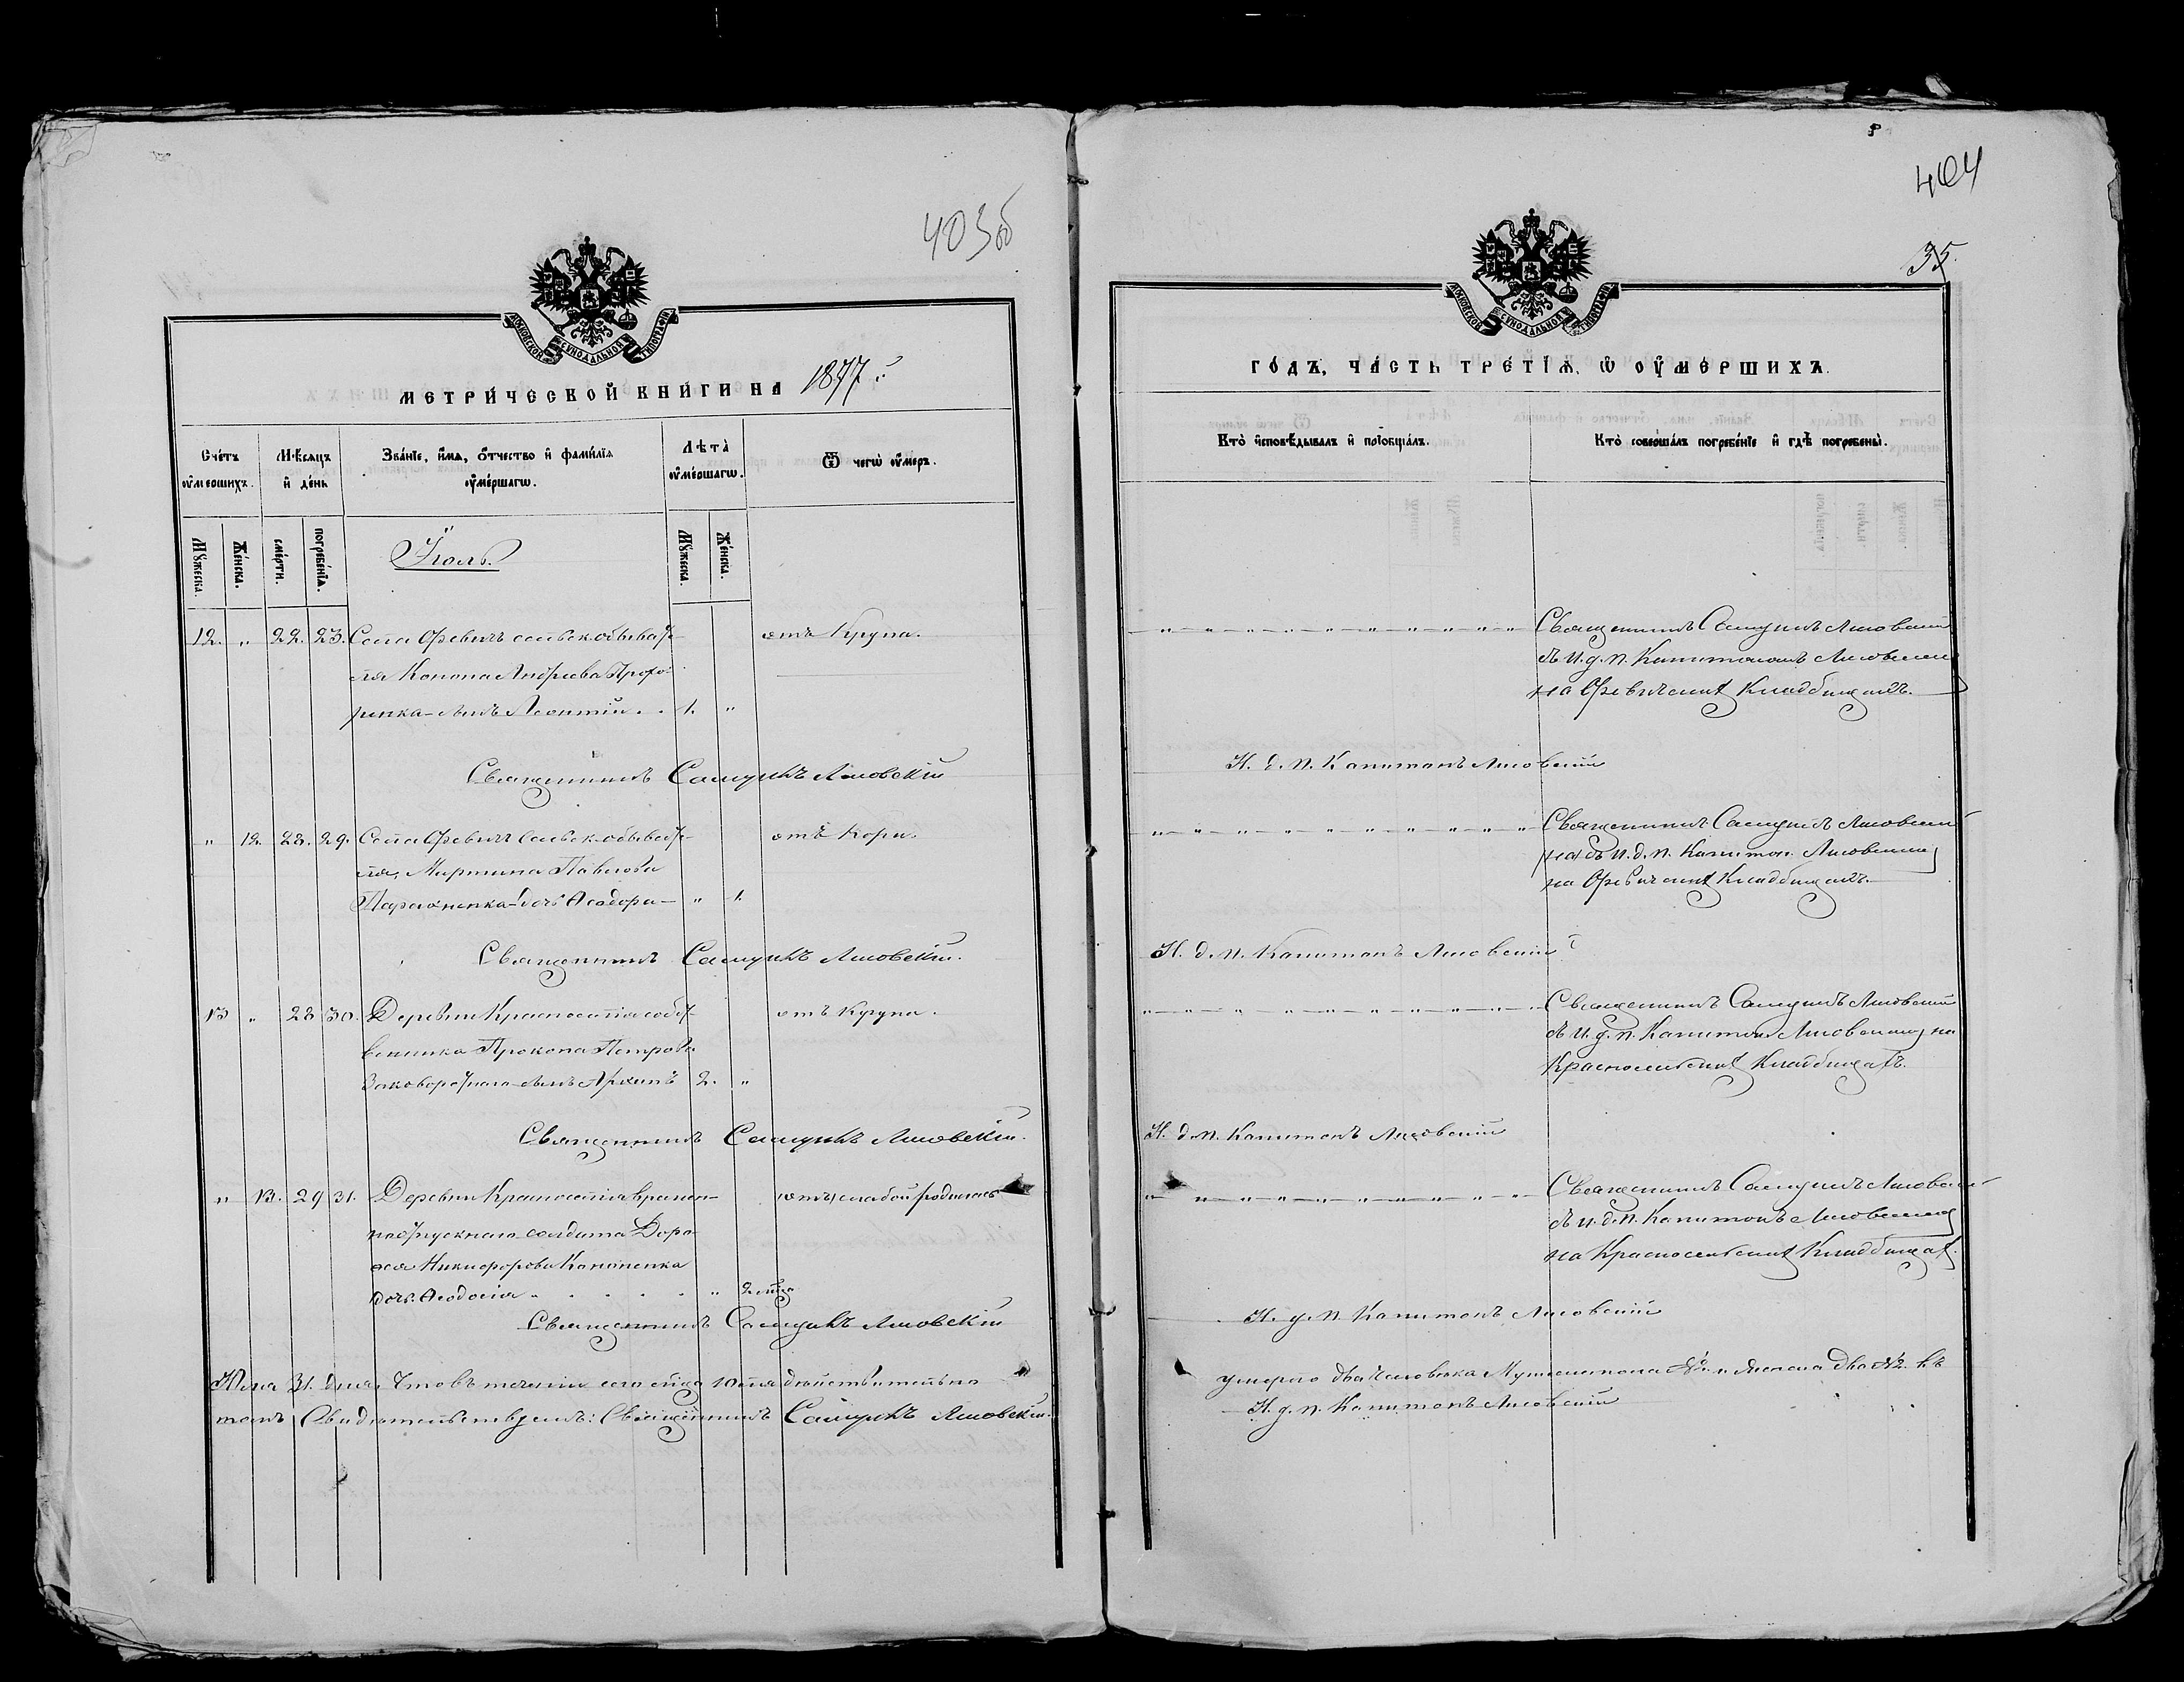 403об
МОСКОВСКОЙ СУНОДАЛЬНОЙ ТИПОГРАФІИ
МЕТРИ́ЧЕСКОЙ КНИ́ГИ НА 1877 й
Сче́тъ ᲂу҆ме́ршихъ.
Мѣ́сяцъ и҆ де́нь
Зва́нїе, и҆́мѧ, ѻ҆́тчество и҆ фами́лїѧ ᲂу҆ме́ршагѡ.
Лѣ́та ᲂу҆ме́ршагѡ.
Ѿ чегѡ̀ ᲂу҆́меръ.
Мꙋ́жеска.
Же́нска.
сме́рти.
погребе́нїѧ.
Іюль.
Мꙋ́жеска.
Же́нска.
12. " 22. 23. Села Оревичъ сельск. обывате-
ля Конона Андреева Прохо-
ренка сынъ Леонтій . . 1. " отъ Крупа.
Священникъ Самуилъ Лисовскій
" 12. 28. 29. Села Оревичъ Сельск. обывате-
ля, Мартина Павлова
дочь Ѳеодора " 1. отъ Кори.
Священникъ Самуилъ Лисовскій.
13 " 28 30. Деревни Красноселья собст-
венника Прокопа Петрова
Заковоротнаго сынъ Архипъ 2. " отъ Крупа.
Священникъ Самуилъ Лисовскій.
" 13. 29 31. Деревни Красноселья времен-
ноотпускнаго солдата Доро-
ѳея Никифорова Кононенка
дочь Ѳеодосія " 2 м-ца отъ слабой родилась
Священникъ Самуилъ Лисовскій
Іюля 31. дня, Что въ теченіи сего м-ца Іюля дѣйствительно
томъ Свидѣтельствуемъ: Священникъ Самуилъ Лисовскій.
404
35.
МОСКОВСКОЙ СУНОДАЛЬНОЙ ТИПОГРАФІИ
ГО́ДЪ, ЧА́СТЬ ТРЕ́ТЇѦ, Ѡ҆ ОУ҆МЕ́РШИХЪ.
Кто̀ и҆сповѣ́дывалъ и҆ прїѡбща́лъ.
Кто̀ соверша́лъ погребе́нїе и҆ гдѣ̀ погребены̀.
Священникъ Самуилъ Лисовскій
съ и. д. п. Капитономъ Лисовскимъ
на Оревичскомъ Кладбищѣ.
И. д. п. Капитонъ Лисовскій
Священникъ Самуилъ Лисовскій
съ и. д. п. Капитон. Лисовскимъ
на Оревичскомъ Кладбищѣ.
И. д. п. Капитонъ Лисовскій
Священникъ Самуилъ Лисовскій
съ и. д. п. Капитон. Лисовскимъ на
Красносельскомъ Кладбищѣ.
И. д. п. Капитонъ Лисовскій
Священникъ Самуилъ Лисовскій
съ и. д. п. Капитонъ Лисовскимъ
на Красносельскомъ Кладбищѣ.
И. д. п. Капитонъ Лисовскій
умерло два человѣка Мужескаго и Женска два №2. въ
И. д. п. Капитонъ Лисовскій